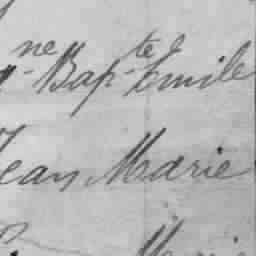 ne-Bapte Emile
Jean Marie